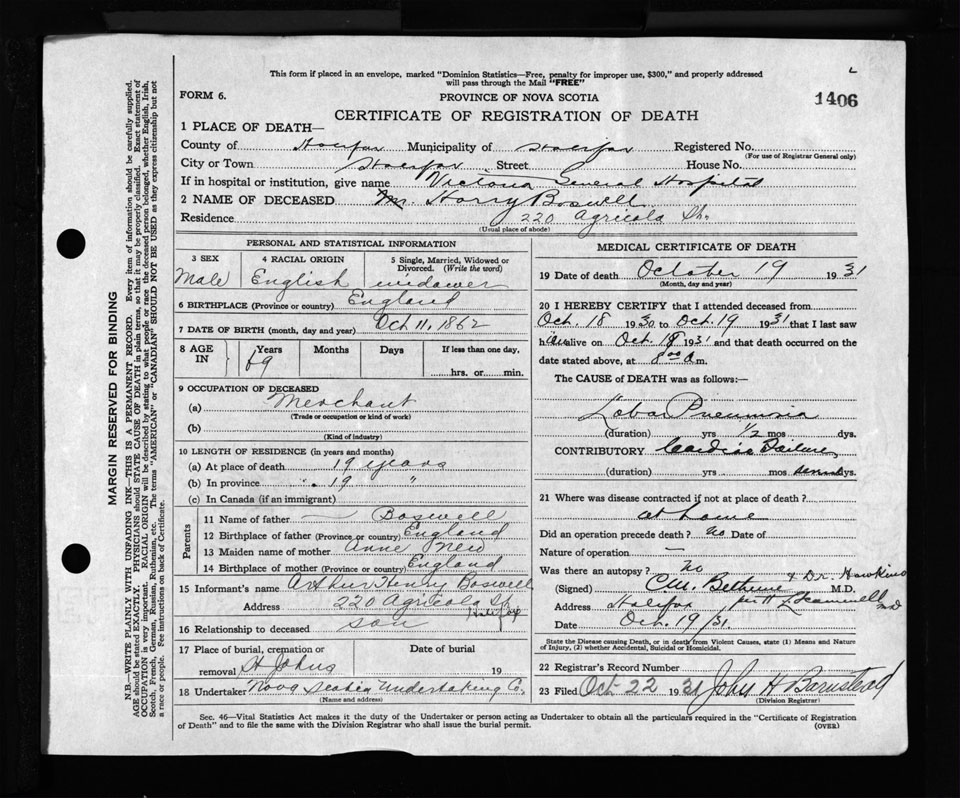 This form if placed in an envelope, marked "Dominion Statistics—Free, penalty for improper use, $300," and properly addressed
will pass through the Mail "FREE"
FORM 6.
PROVINCE OF NOVA SCOTIA
1406
CERTIFICATE OF REGISTRATION OF DEATH
1 PLACE OF DEATH—
County of Halifax Municipality of Halifax Registered No.
(For use of Registrar General only)
City or Town Halifax Street House No.
If in hospital or institution, give name Victoria General Hospital
2 NAME OF DECEASED M. Harry Boswell
Residence 220 Agricola St.
(Usual place of abode)
PERSONAL AND STATISTICAL INFORMATION
3 SEX Male
4 RACIAL ORIGIN English
5 Single, Married, Widowed or Divorced. (Write the word) widower
6 BIRTHPLACE (Province or country) England
7 DATE OF BIRTH (month, day and year) Oct 11, 1862
8 AGE IN Years 69 Months Days If less than one day, hrs. or min.
9 OCCUPATION OF DECEASED
(a) Merchant
(Trade or occupation or kind of work)
(b)
(Kind of industry)
10 LENGTH OF RESIDENCE (in years and months)
(a) At place of death 19 years
(b) In province 19 "
(c) In Canada (if an immigrant)
Parents
11 Name of father — Boswell
12 Birthplace of father (Province or country) England
13 Maiden name of mother Anne New
14 Birthplace of mother (Province or country) England
15 Informant's name Arthur Henry Boswell
Address 220 Agricola St Halifax
16 Relationship to deceased son
17 Place of burial, cremation or removal St Johns
Date of burial 19
18 Undertaker Nova Scotia Undertaking Co.
(Name and address)
MEDICAL CERTIFICATE OF DEATH
19 Date of death October 19 1931
(Month, day and year)
20 I HEREBY CERTIFY that I attended deceased from
Oct. 18 1930 to Oct. 19 1931 that I last saw
h alive on Oct. 18 1931 and that death occurred on the
date stated above, at 8 00 a m.
The CAUSE OF DEATH was as follows:—
Lobar Pneumonia
(duration) yrs 1/2 mos dys.
CONTRIBUTORY Cardiac Failure
(duration) yrs mos dys.
21 Where was disease contracted if not at place of death?
at home
Did an operation precede death? no Date of
Nature of operation —
Was there an autopsy? no
(Signed) C.M. Bethune + Dr. Hawkins M.D.
Address Halifax per
Date Oct. 19/31.
State the Disease causing Death, or in death from Violent Causes, state (1) Means and Nature
of Injury, (2) whether Accidental, Suicidal or Homicidal.
22 Registrar's Record Number
23 Filed Oct 22 1931 John H Barnstead
(Division Registrar)
Sec. 46—Vital Statistics Act makes it the duty of the Undertaker or person acting as Undertaker to obtain all the particulars required in the "Certificate of Registration
of Death" and to file the same with the Division Registrar who shall issue the burial permit.
(OVER)
MARGIN RESERVED FOR BINDING
N.B.—WRITE PLAINLY WITH UNFADING INK—THIS IS A PERMANENT RECORD. Every item of information should be carefully supplied.
AGE should be stated EXACTLY. PHYSICIANS should STATE CAUSE OF DEATH in plain terms, so that it may be properly classified. Exact statement of
OCCUPATION is very important. RACIAL ORIGIN will be described by stating to what people or race the deceased person belonged, whether English, Irish,
Scotch, French, German, Russian, Ruthenian, etc. The terms "AMERICAN" or "CANADIAN" SHOULD NOT BE USED as they express citizenship but not
a race or people. Fee instructions on back of Certificate.